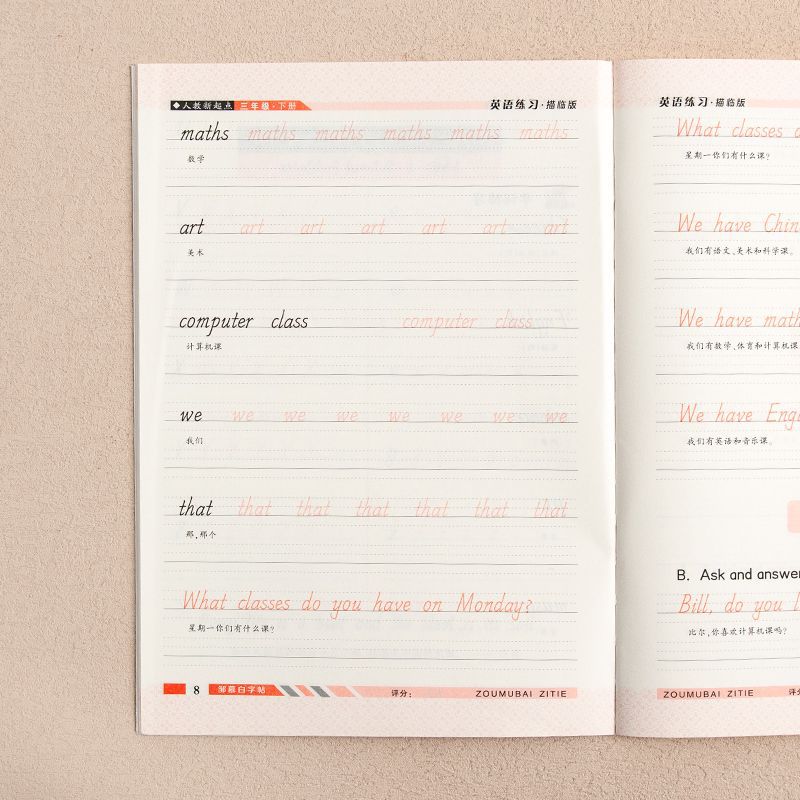 ◆人教新起点 三年级·下册 英语练习·描临版
maths maths maths maths maths maths
数学
art art art art art art art
美术
computer class computer class
计算机课
we we we we we we we we
我们
that that that that that that
那，那个
What classes do you have on Monday?
星期一你们有什么课?
8 邹慕白字帖 评分: ZOUMUBAI ZITIE
英语练习·描临版
What classes
星期一你们有什么课?
We have Chin
我们有语文、美术和科学课。
We have math
我们有数学、体育和计算机课
We have Engl
我们有英语和音乐课。
B. Ask and answer
Bill, do you l
比尔,你喜欢计算机课吗?
ZOUMUBAI ZITIE 评